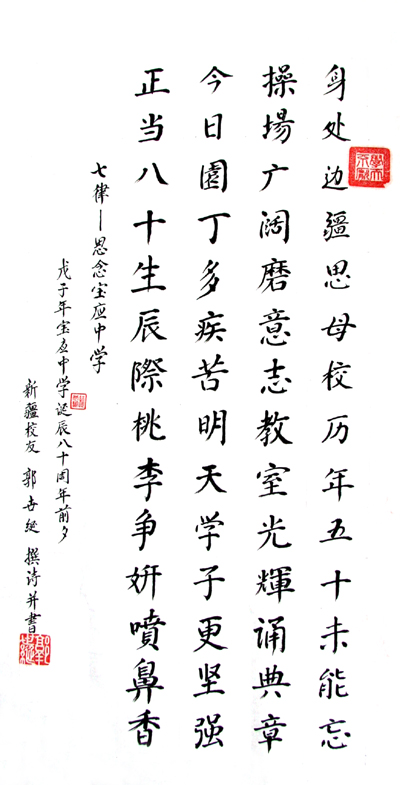 身处边疆思母校历年五十未能忘
操場广阔磨意志教室光輝诵典章
今日園丁多疾苦明天学子更坚强
正当八十生辰際桃李争妍噴鼻香
七律—思念宝应中学
戊子年宝应中学诞辰八十周年前夕
新疆校友 郭世綖 撰诗并書